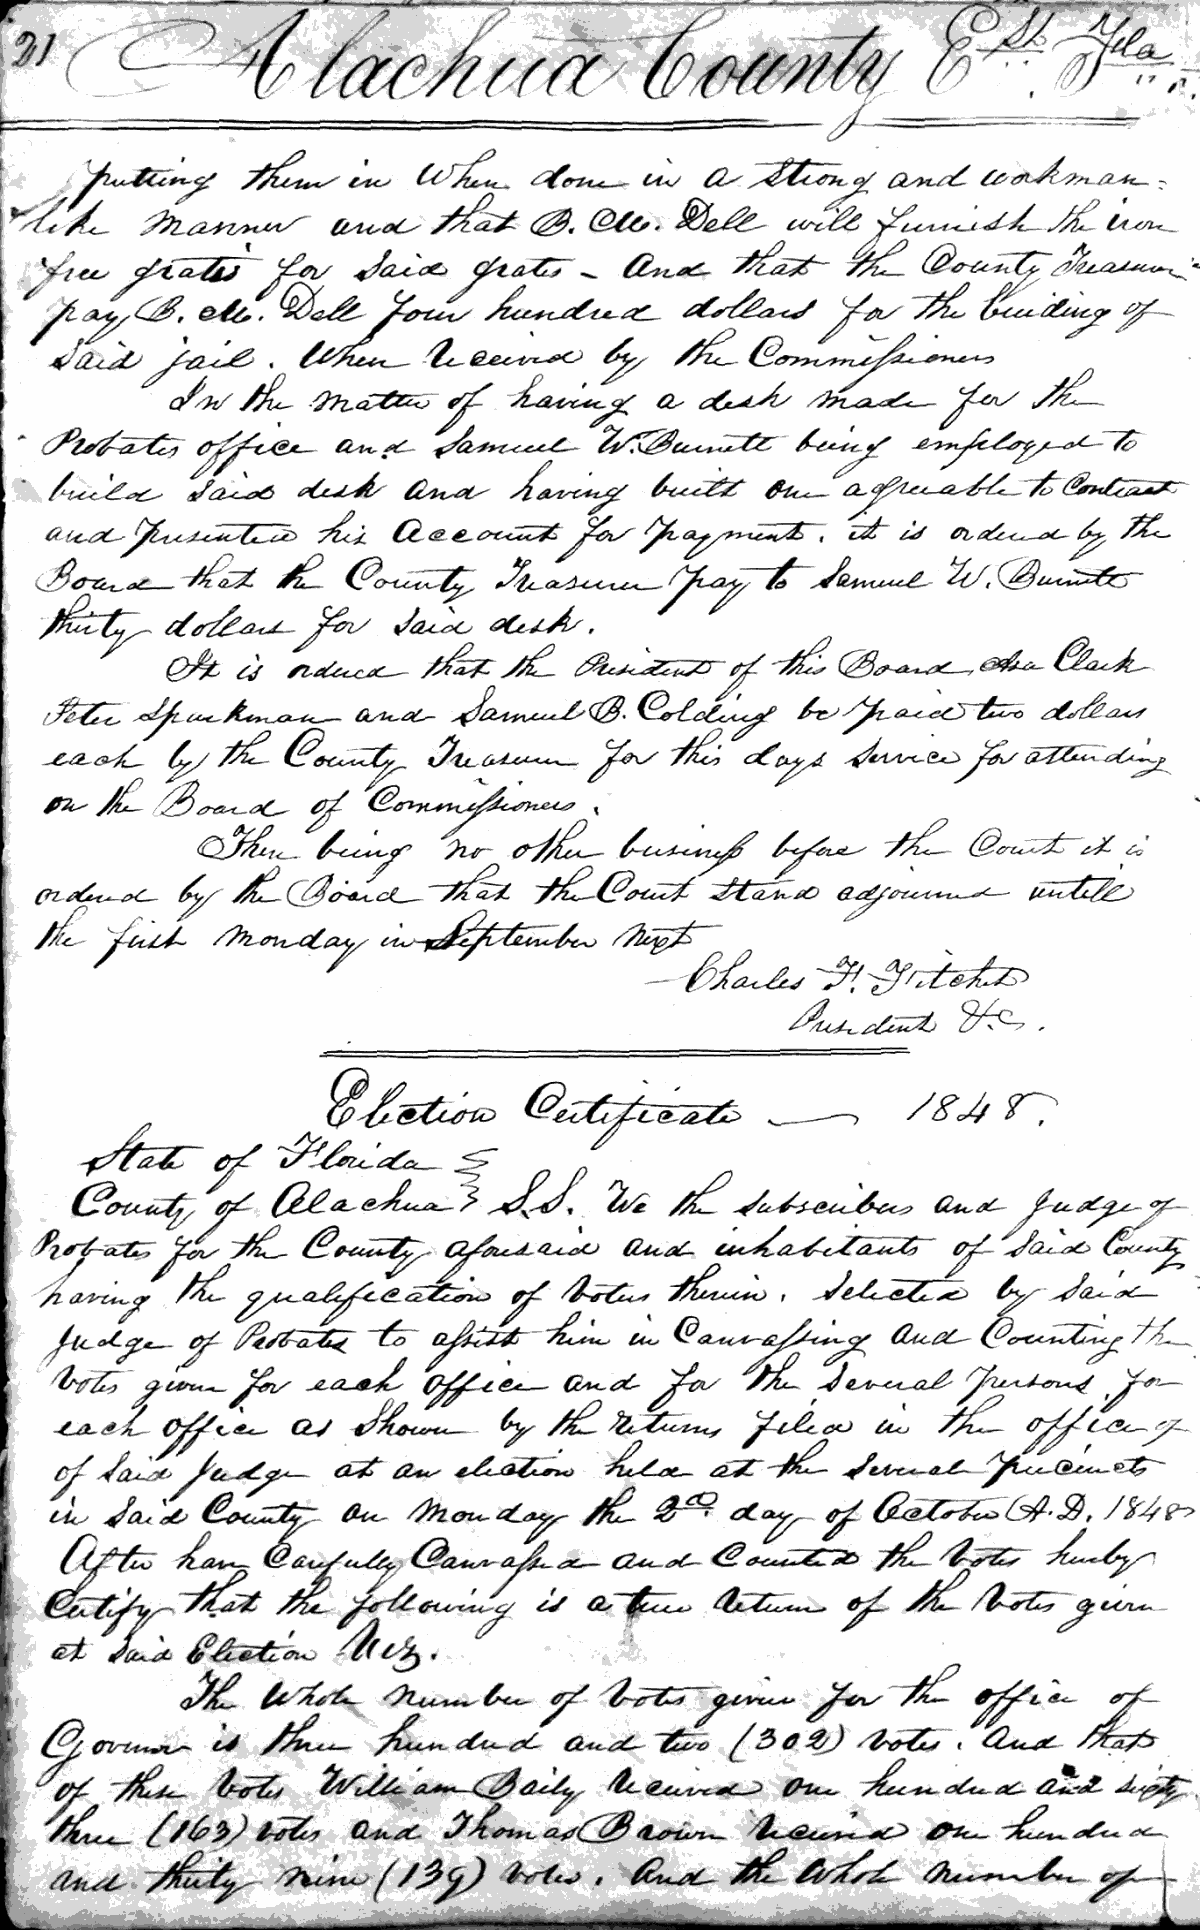 21 Alachua County E. St. Fla
putting them in When done in a Strong and workman=
like manner and that B. M. Dell will furnish the iron
free gratis for Said grates – And that the County Treasurer
pay B. M. Dell four hundred dollars for the building of
Said jail. When Received by the Commissioners
In the matter of having a desk made for the
Probates office and Samuel W. Burnett being employed to
build said desk and having built one agreeable to Contract
and presented his Account for payment. it is ordered by the
Board that the County Treasurer pay to Samuel W. Burnett
thirty dollars for Said desk.
It is ordered that the President of this Board Asa Clark
Peter Sparkman and Samuel B. Colding be paid two dollars
each by the County Treasurer for this days Service for attending
on the Board of Commissioners.
There being no other business before the Court it is
ordered by the Board that the Court Stand adjourned untill
the first Monday in September Next
Charles F. Fitchet
President &c.
Election Certificate — 1848.
State of Florida
County of Alachua S.S. We the Subscribers and Judge of
Probates for the County aforesaid and inhabitants of Said County
having the qualification of Voters therein. Selected by Said
Judge of Probates to assist him in Canvassing and Counting the
Votes given for each office and for the Several persons for
each office as Shown by the returns filed in the office of
of Said Judge at an election held at the Several precincts
in Said County on Monday the 2nd day of October A.D. 1848
After have Carefully Canvassed and Counted the Votes hereby
Certify that the following is a true Return of the Votes given
at Said Election Viz.
The Whole number of Votes given for the office of
Governor is three hundred and two (302) votes. And that
of these Votes William Baily Received one hundred and sixty
three (163) votes and Thomas Brown Received one hundred
and thirty nine (139) votes. And the Whole number of